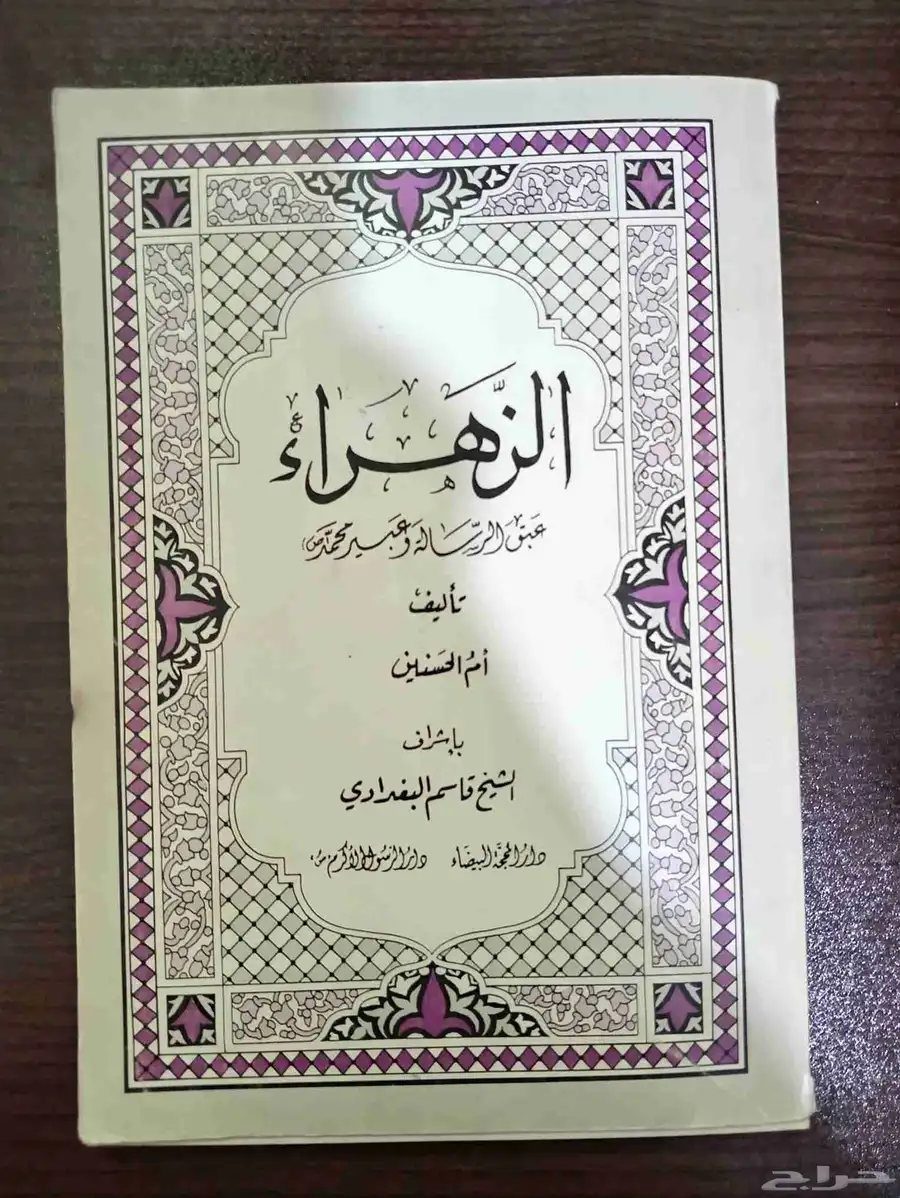 الزَّهراءُ ع
عبق الرِّسالة وعبير محمَّد (ص)
تأليف
أم الحسنين
بإشراف
الشيخ قاسم البغدادي
دار المحجَّة البيضاء دار الرسول الأكرم ص
حراج